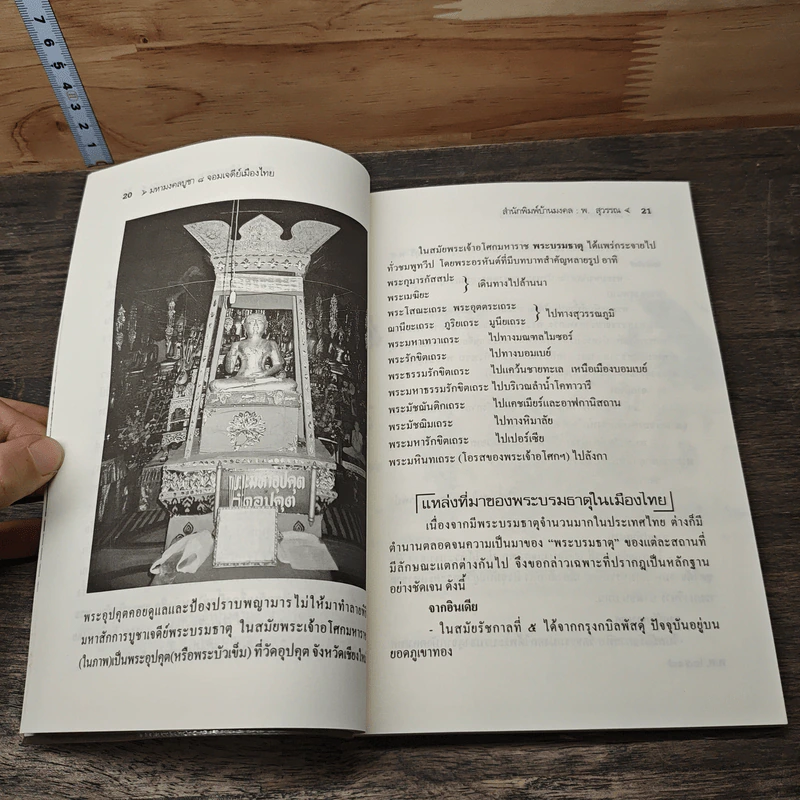 7
6
5
4
3
2
1
20 > มหามงคลบูชา ๘ จอมเจดีย์เมืองไทย
พระมหาอุปคุต
วัดอุปคุต
พระอุปคุตคอยดูแลและป้องปราบพญามาร ไม่ให้มาทำลาย
มหาสักการบูชาเจดีย์พระบรมธาตุ ในสมัยพระเจ้าอโศกมหาราช
(ในภาพ)เป็นพระอุปคุต(หรือพระบัวเข็ม) ที่วัดอุปคุต จังหวัดเชียงใหม่
สำนักพิมพ์บ้านมงคล : พ. สุวรรณ < 21
ในสมัยพระเจ้าอโศกมหาราช พระบรมธาตุ ได้แพร่กระจายไป
ทั่วชมพูทวีป โดยพระอรหันต์ที่มีบทบาทสำคัญหลายรูป อาทิ
พระกุมารกัสสปะ
พระเมฆิยะ } เดินทางไปล้านนา
พระโสณะเถระ พระอุตตระเถระ
ฌานียะเถระ ภูริยะเถระ มูนียะเถระ } ไปทางสุวรรณภูมิ
พระมหาเทวาเถระ ไปทางมณฑลไมซอร์
พระรักขิตเถระ ไปทางบอมเบย์
พระธรรมรักขิตเถระ ไปแคว้นชายทะเล เหนือเมืองบอมเบย์
พระมหาธรรมรักขิตเถระ ไปบริเวณลำน้ำโคทาวารี
พระมัชฌันติกเถระ ไปแคชเมียร์และอาฟกานิสถาน
พระมัชฌิมเถระ ไปทางหิมาลัย
พระมหารักขิตเถระ ไปเปอร์เซีย
พระมหินทเถระ (โอรสของพระเจ้าอโศกฯ) ไปลังกา
แหล่งที่มาของพระบรมธาตุในเมืองไทย
เนื่องจากมีพระบรมธาตุจำนวนมากในประเทศไทย ต่างก็มี
ตำนานตลอดจนความเป็นมาของ "พระบรมธาตุ" ของแต่ละสถานที่
มีลักษณะแตกต่างกันไป จึงขอกล่าวเฉพาะที่ปรากฏเป็นหลักฐาน
อย่างชัดเจน ดังนี้
จากอินเดีย
- ในสมัยรัชกาลที่ ๕ ได้จากกรุงกบิลพัสดุ์ ปัจจุบันอยู่บน
ยอดภูเขาทอง